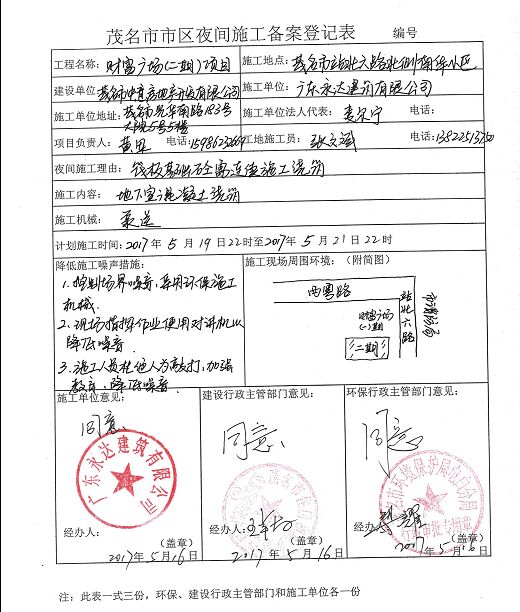 茂名市市区夜间施工备案登记表 编号
工程名称: 财富广场(二期)项目 施工地点: 茂名市站北六路北侧南华小区
建设单位: 茂名市中育房地产开发有限公司 施工单位: 广东永达建筑有限公司
施工单位地址: 茂名市光华南路183号大院5号5楼 施工单位法人代表: 电话:
项目负责人: 电话: 工地施工员: 张文斌 电话:
夜间施工理由: 筏板基础砼需连续施工浇筑
施工内容: 地下室混凝土浇筑
施工机械: 泵送
计划施工时间: 2017年5月19日22时至2017年5月21日22时
降低施工噪声措施: 施工现场周围环境: (附简图)
1. 控制场界噪音,采用环保施工
机械.
2. 现场指挥作业使用对讲机以
降低噪音.
3. 施工人员杜绝人为敲打,加强
教育,降低噪音.
西粤路
站北六路
市消防局
财富广场
(一)期
(二期)
施工单位意见: 建设行政主管部门意见: 环保行政主管部门意见:
同意 同意 同意
广东永达建筑有限公司
经办人: 经办人:
(盖章) (盖章) (盖章)
2017年5月16日 2017年5月16日 2017年5月16日
注: 此表一式三份, 环保、建设行政主管部门和施工单位各一份